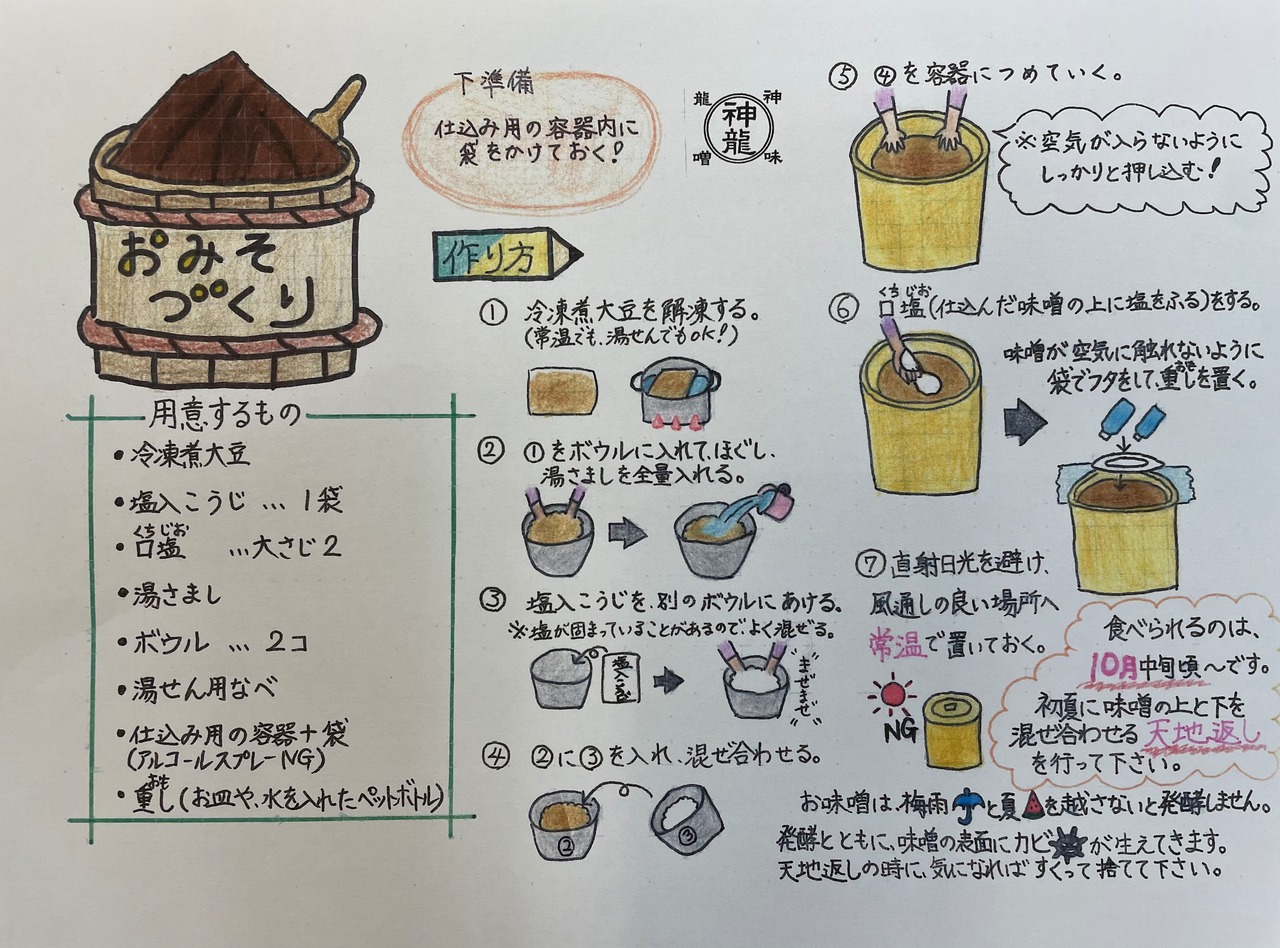 おみそ
づくり
用意するもの
・冷凍煮大豆
・塩入こうじ … 1袋
くちじお
・口塩 …大さじ2
・湯さまし
・ボウル … 2コ
・湯せん用なべ
・仕込み用の容器＋袋
(アルコールスプレーNG)
おも
・重し(お皿や、水を入れたペットボトル)
下準備
仕込み用の容器内に
袋をかけておく!
龍 神
神
龍
噌 味
作り方
① 冷凍煮大豆を解凍する。
(常温でも、湯せんでもOK!)
② ①をボウルに入れて、ほぐし、
湯さましを全量入れる。
③ 塩入こうじを、別のボウルにあける。
※塩が固まっていることがあるので、よく混ぜる。
塩入こうじ
まぜまぜ
④ ②に③を入れ、混ぜ合わせる。
②
③
⑤ ④を容器につめていく。
※空気が入らないように
しっかりと押し込む!
くちじお
⑥ 口塩(仕込んだ味噌の上に塩をふる)をする。
味噌が空気に触れないように
おも
袋でフタをして、重しを置く。
⑦ 直射日光を避け、
風通しの良い場所へ
常温で置いておく。
NG
食べられるのは、
10月中旬頃～です。
初夏に味噌の上と下を
混ぜ合わせる天地返し
を行って下さい。
お味噌は、梅雨と夏を越さないと発酵しません。
発酵とともに、味噌の表面にカビが生えてきます。
天地返しの時に、気になればすくって捨てて下さい。